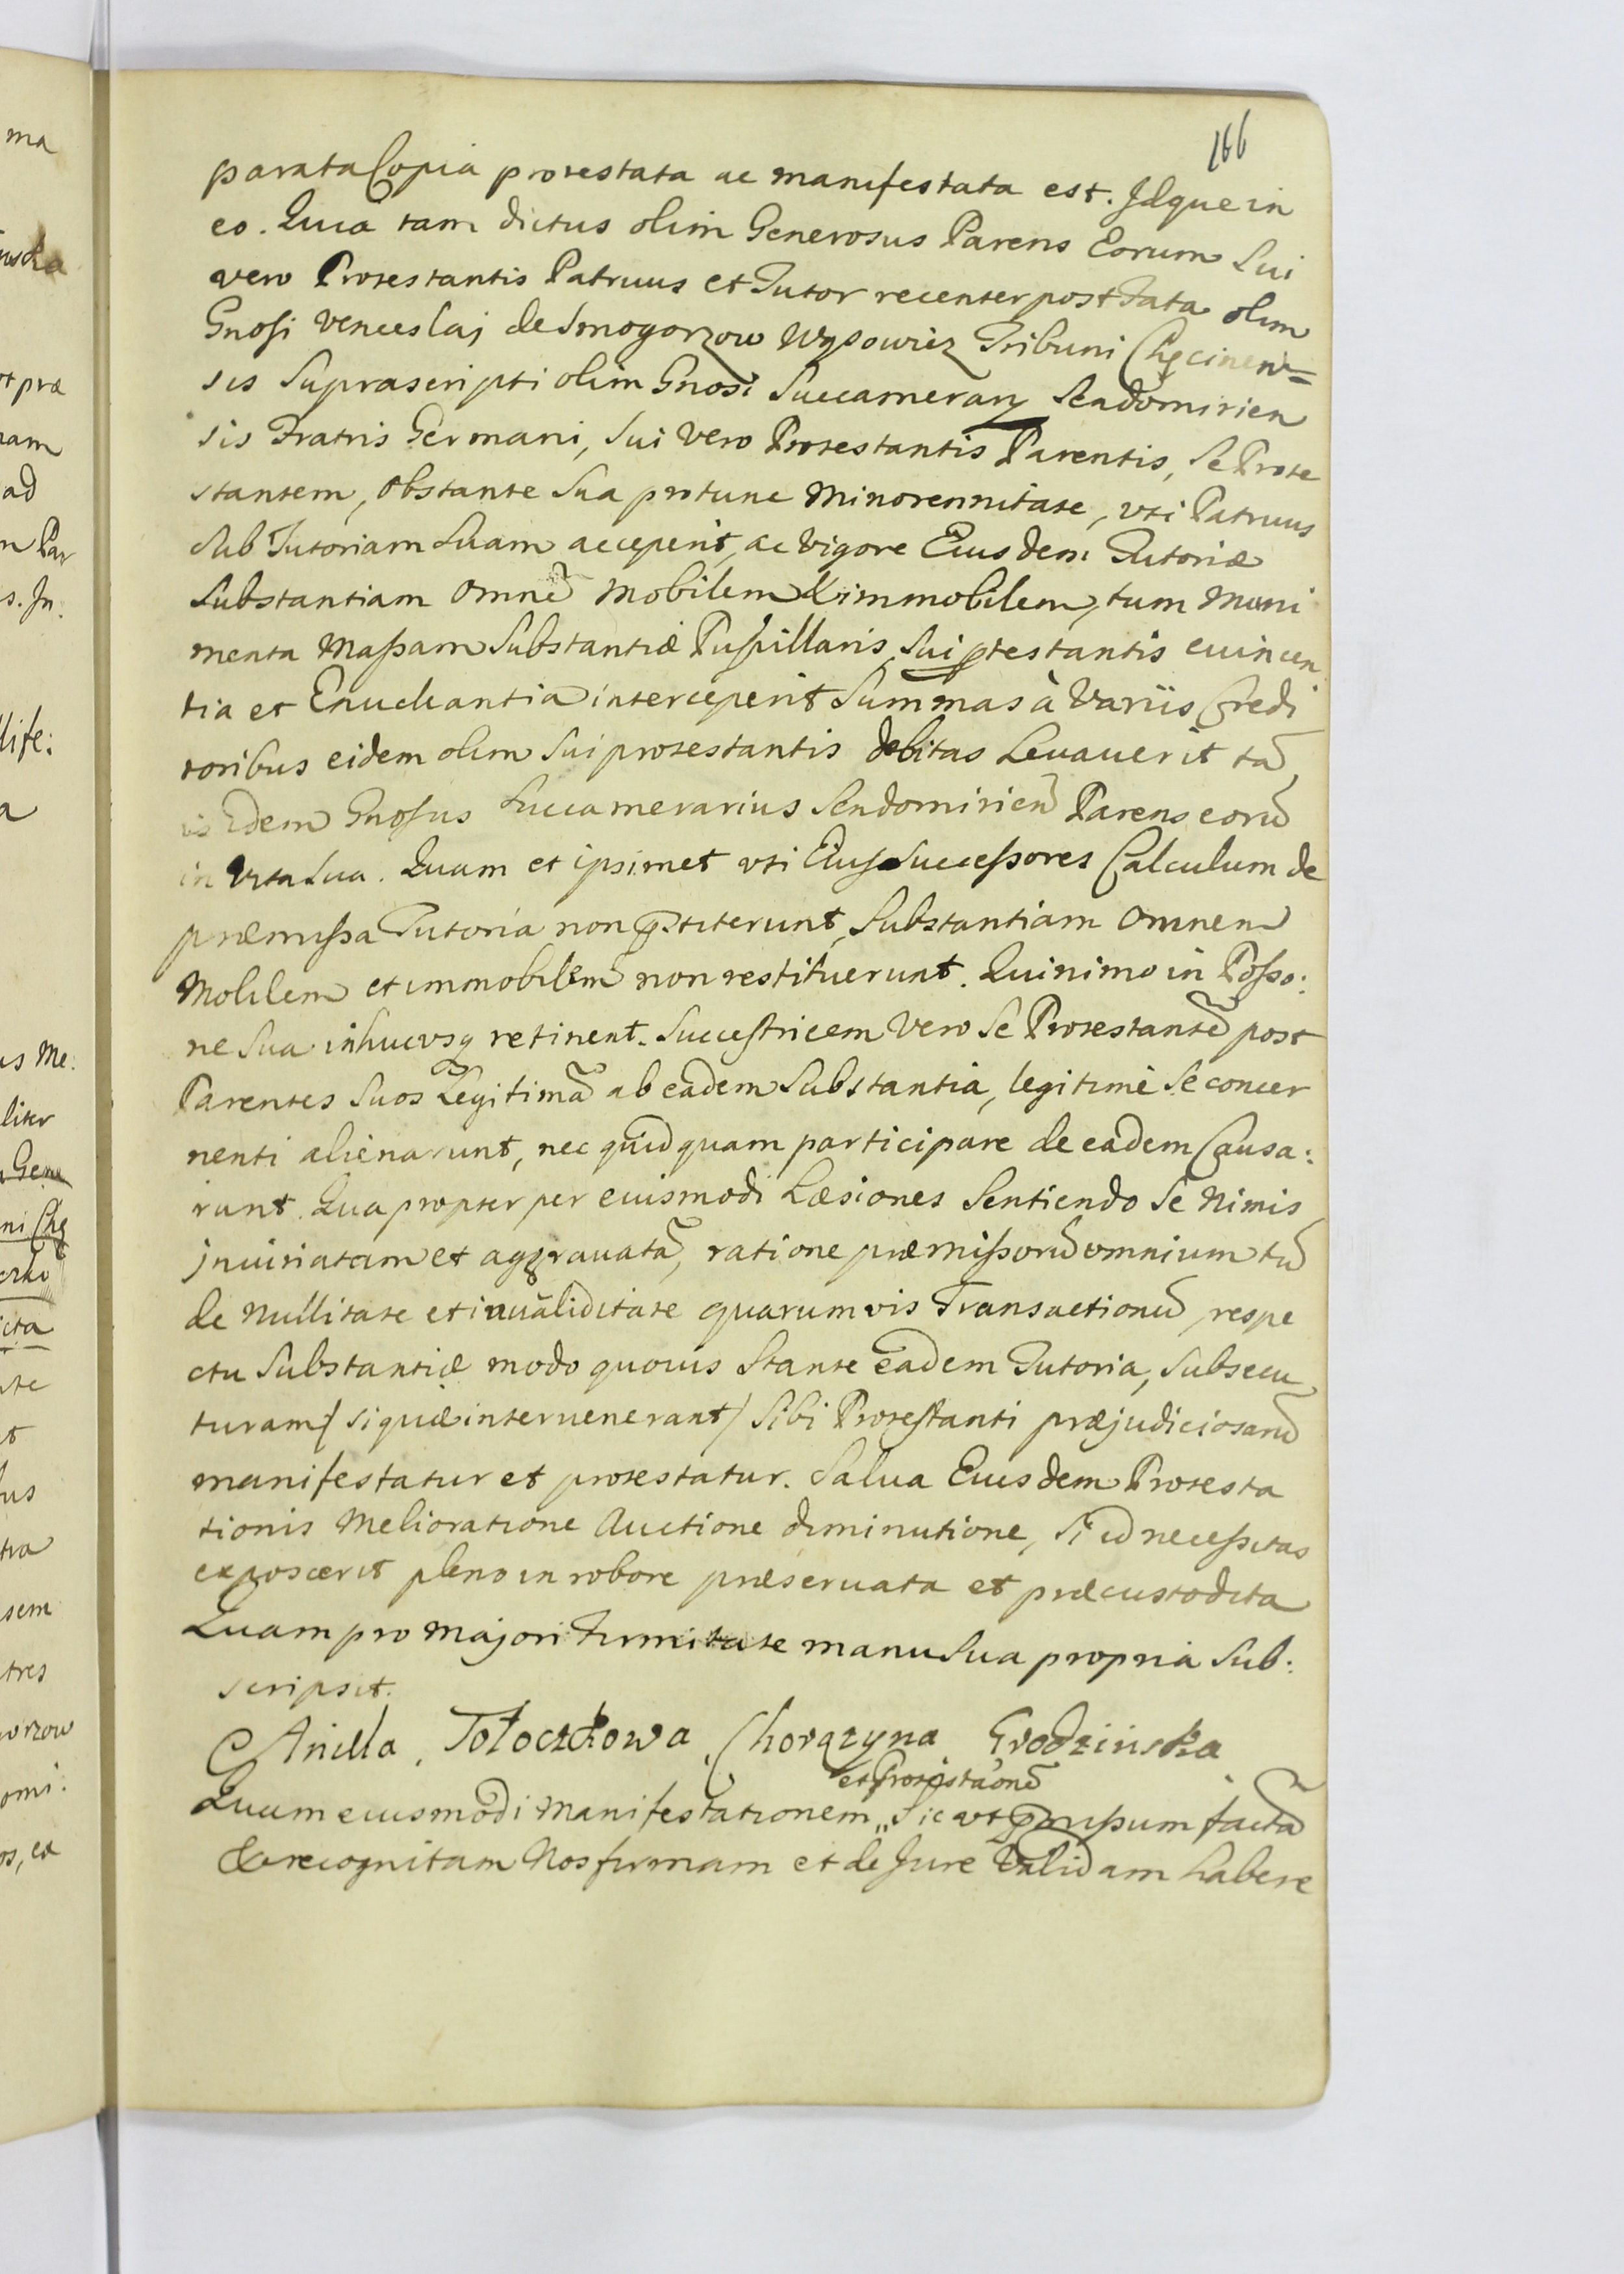 166
parata Copia protestata ac manifestata est. Idque in
eo. Quia tam dictus olim Generosus Parens Eorum Sui
vero Protestantis Patruus et Tutor recenter post Fata olim
Gnosi Venceslaj de Smogorzow Wąsowicz Tribuni Chęcinen=
sis Suprascripti olim Gnosi Succamerary Sendomirien
sis Fratris Germani, Sui Vero Protestantis Parentis, Se Prote
stantem, Obstante Sua protunc Minorennitate, vti Patruus
Sub Tutoriam Suam acceperit, ac Vigore Eiusdem Tutoriæ
Substantiam Omnē Mobilem & immobilem, tum Muni
menta Maßam Substantiæ Pupillaris, Sui ptestantis euincen
tia et Enucleantia interceperit Summas à Variis Credi
toribus eidem olim Sui protestantis debitas Leuauerit tā
is Idem Gnosus Succamerarius Sendomirien̄ Parens eorū
in Vita Sua. Quam et ipsimet vti Eius Succeßores Calculum de
præmißa Tutoria non pstiterunt, Substantiam Omnem
Mobilem et immobilem non restituerunt. Quinimo in Poßo:
ne Sua inhucusq retinent. Succestricem Vero Se Protestantē post
Parentes Suos Legitimā ab eadem Substantia, legitimè Se concer
nenti alienarunt, nec quidquam participare de eadem Causa:
runt. Qua propter per euismodi Læsiones Sentiendo Se Nimis
jniuriatam et aggrauatā, ratione præmißorū omnium tū
de Nullitate et inualiditate quarumvis Transactionū, respe
ctu Substantiæ modo quouis Stante eadem Tutoria, Subsecu
turam / si quæ interuenerant / Sibi Protestanti præjudiciosarū
manifestatur et protestatur. Salua Eiusdem Protesta
tionis Melioratione Auctione diminutione, Si id neceßitas
exposcerit pleno in robore præseruata et præcustodita
Quam pro majori Firmitate manu Sua propria Sub:
scripsit.
Aniella Tołoczkowa Chorązyna Grodzinska
et Protestaonē
Quam eiusmodi Manifestationem „ Sic vt pmißum factā
& recognitam Nos firmam et de Jure Validam habere